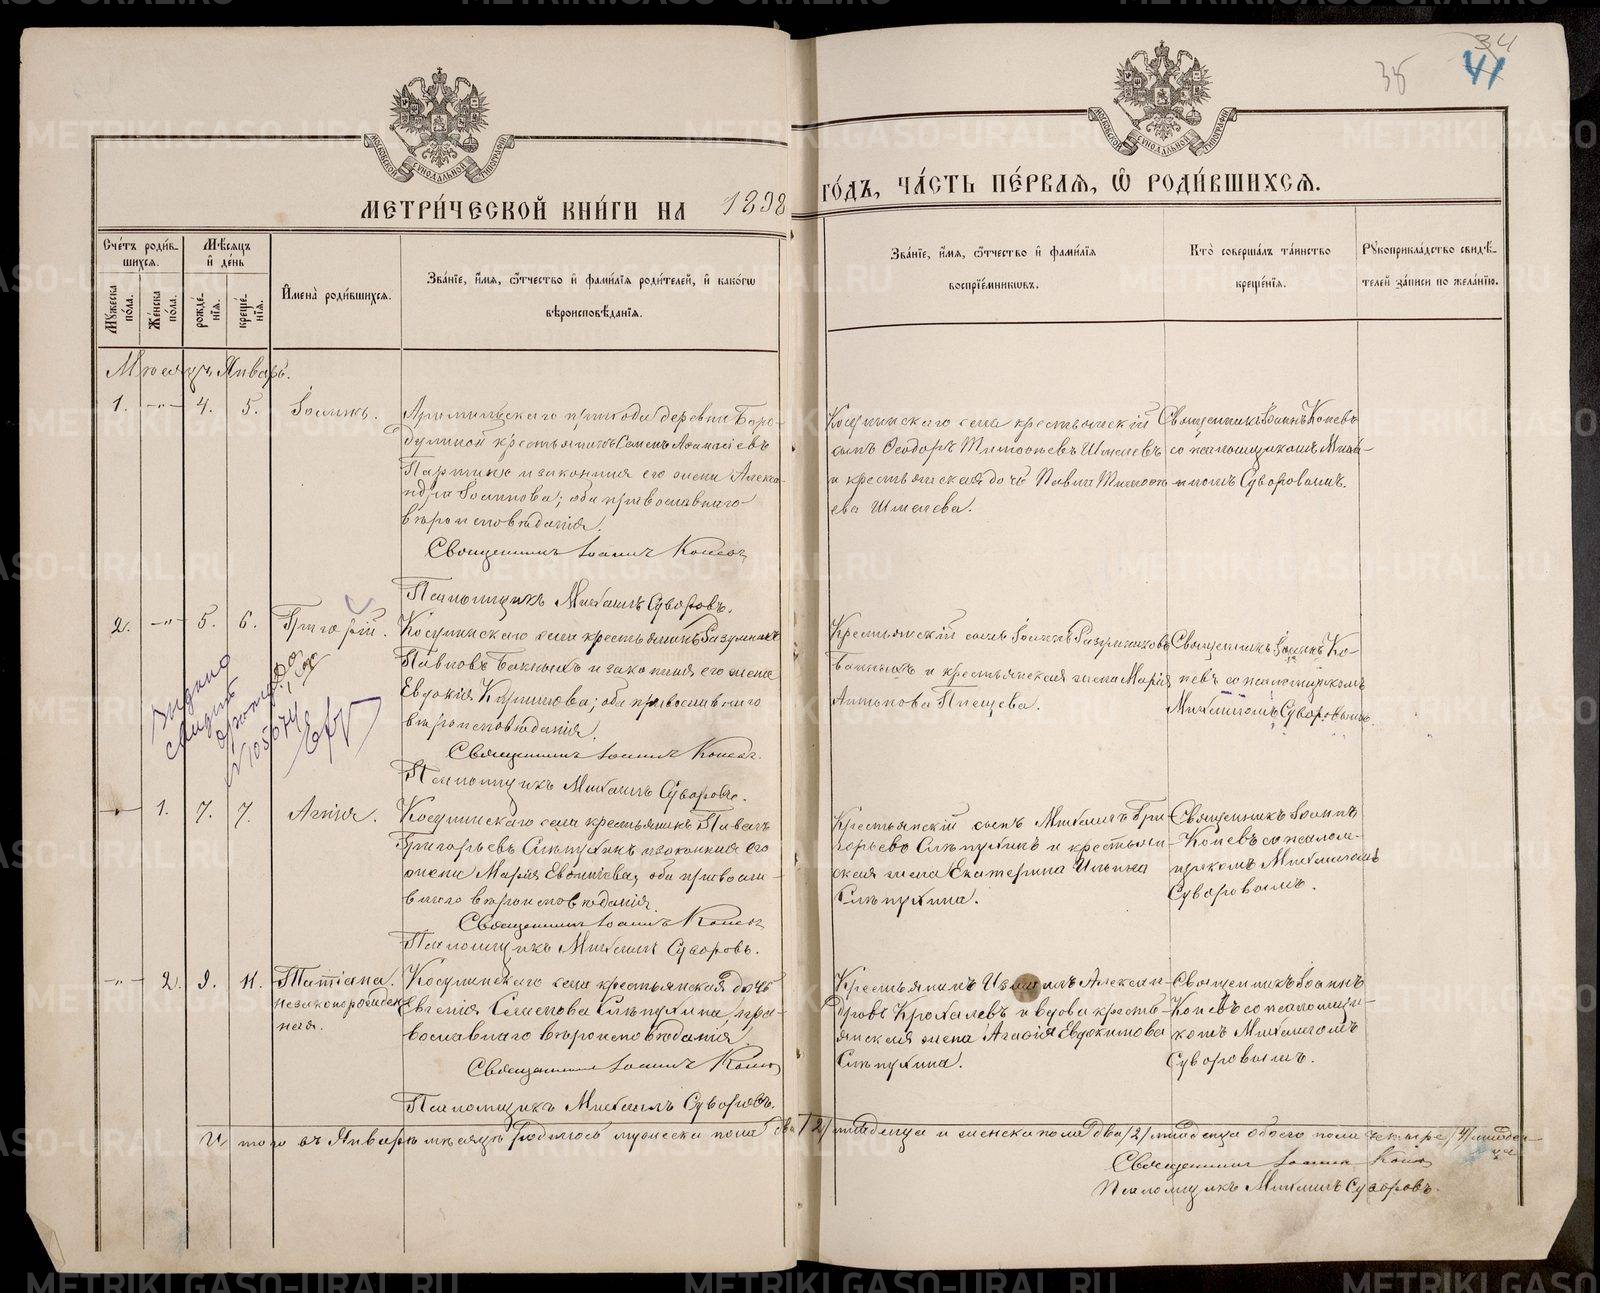 34
38
41
МОСКОВСКОЙ СѴНОДАЛЬНОЙ ТИПОГРАФІИ
МОСКОВСКОЙ СѴНОДАЛЬНОЙ ТИПОГРАФІИ
МЕТРИ́ЧЕСКОЙ КНИ́ГИ НА 1898
ГО́ДЪ, ЧА́СТЬ ПЕ́РВАЯ, Ѡ РОДИ́ВШИХСЯ.
Сче́тъ роди́в-
шихся.
Мꙋжеска по́ла.
Же́нска по́ла.
Мѣ́сяцъ и҆ де́нь
рожде́нїя.
креще́нїя.
И҆мена̀ роди́вшихся.
Зва́нїе, и҆́мя, ѻ҆́тчество и҆ фами́лїя роди́телей, и҆ како́гѡ
вѣроисповѣ́данїя.
Зва́нїе, и҆́мя, ѻ҆́тчество и҆ фами́лїя
воспрїе́мникѡвъ.
Кто̀ соверша́лъ та́инство
креще́нїя.
Рꙋкоприкла́дство свидѣ́-
телей за́писи по жела́нїю.
Месяцъ Январь.
1. -"- 4. 5. Іоаннъ.
Арамильскаго прихода деревни Боро-
дулиной крестьянинъ Семенъ Аѳанасіевъ
и законная его жена Алекса-
ндра Іоаннова; оба православнаго
вѣроисповѣданія.
Священникъ Іоаннъ Коневъ
Псаломщикъ Михаилъ Суворовъ.
Косулинскаго села крестьянскій
сынъ Ѳеодоръ Тимоѳеевъ
и крестьянская дочь Павла Тимоѳе-
ева
Священникъ Іоаннъ Коневъ
со псаломщикомъ Миха-
иломъ Суворовымъ.
2. -"- 5. 6. Григорій.
Косулинскаго села крестьянинъ Разумникъ
Павловъ и законная его жена
Евдокія оба православнаго
вѣроисповѣданія.
Священникъ Іоаннъ Коневъ.
Псаломщикъ Михаилъ Суворовъ.
Крестьянскій сынъ Іоаннъ Разумниковъ
и крестьянская жена Марія
Антонова Пнещева.
Священникъ Іоаннъ Ко-
невъ со псаломщикомъ
Михаиломъ Суворовымъ.
Выдано
1. 7. 7. Агнія.
Косулинскаго села крестьянинъ Павелъ
Григорьевъ Слѣпухинъ и законная его
жена Марія оба правосла-
внаго вѣроисповѣданія.
Священникъ Іоаннъ Коневъ
Псаломщикъ Михаилъ Суворовъ.
Крестьянскій сынъ Михаилъ Гри-
горьевъ Слѣпухинъ и крестьян-
ская жена Екатерина Ильина
Слѣпухина.
Священникъ Іоаннъ
Коневъ со псалом-
щикомъ Михаиломъ
Суворовымъ.
-"- 2. 9. 11. Татіана.
незаконорожден-
ная.
Косулинскаго села крестьянская дочь
Евгенія Семенова Слѣпухина, пра-
вославнаго вѣроисповѣданія.
Священникъ Іоаннъ Коневъ
Псаломщикъ Михаилъ Суворовъ.
Крестьянинъ Алексан-
дровъ Крохалевъ и вдова кресть-
янская жена Агафія Евдокимова
Слѣпухина.
Священникъ Іоаннъ
Коневъ со псаломщи-
комъ Михаиломъ
Суворовымъ.
Итого въ Январѣ мѣсяцѣ родилось мужеска пола два /2/ младенца и женска пола два /2/ младенца обоего пола четыре /4/ младен-
ца
Священникъ Іоаннъ Коневъ
Псаломщикъ Михаилъ Суворовъ.
METRIKI.GASO-URAL.RU